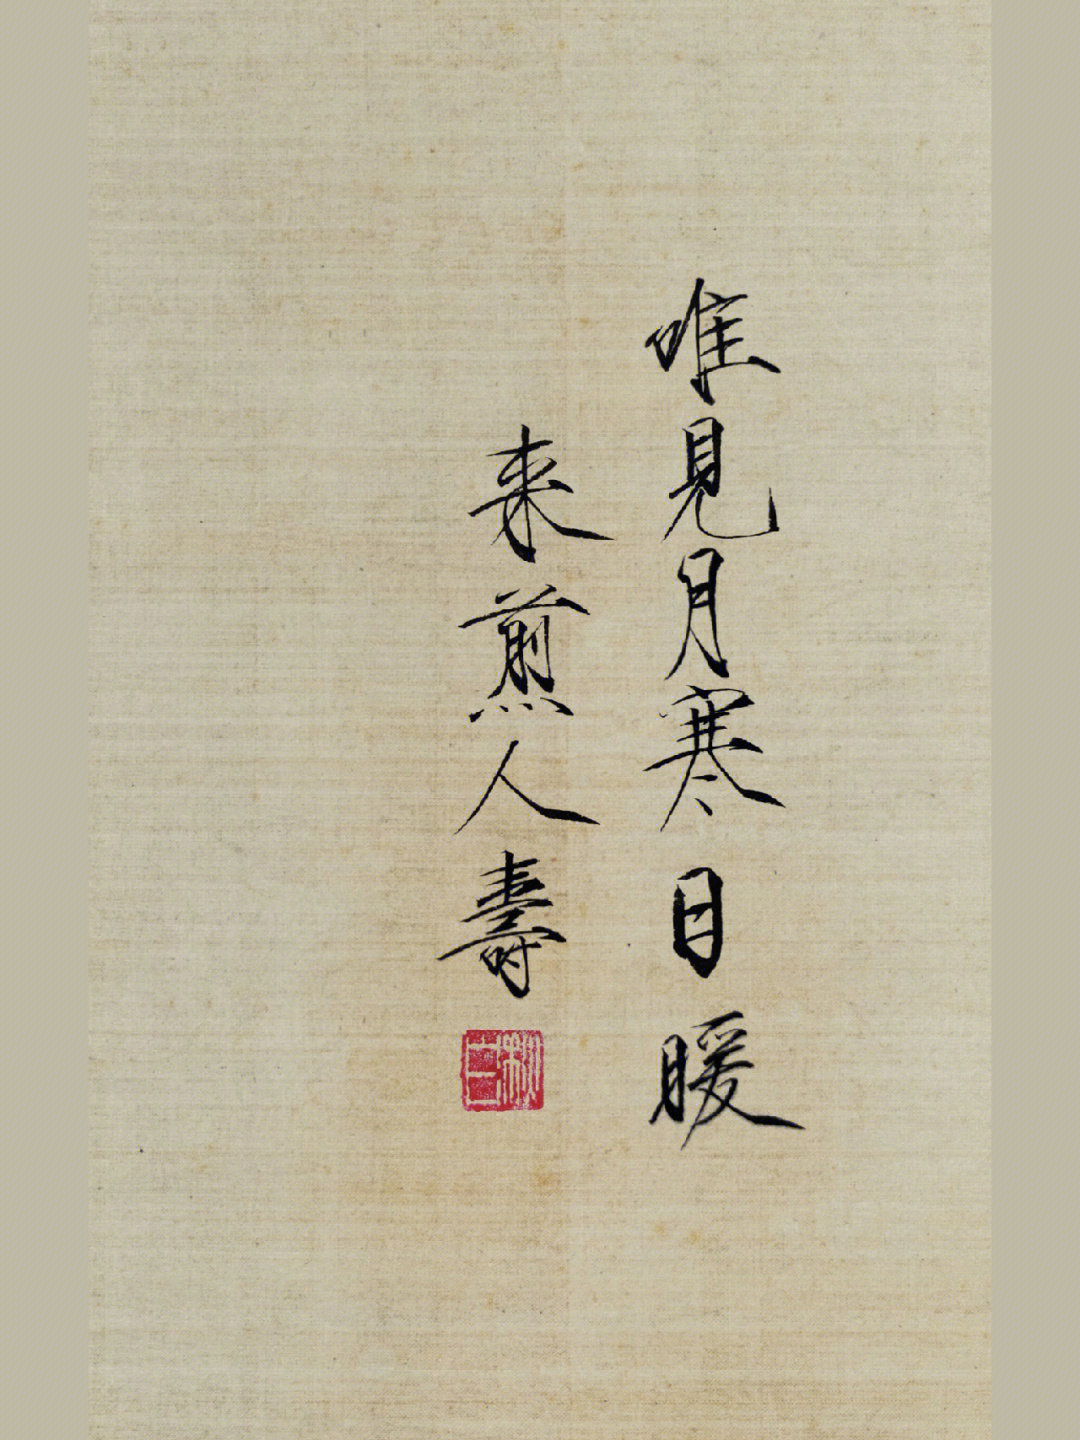 唯見月寒日暖
来煎人壽